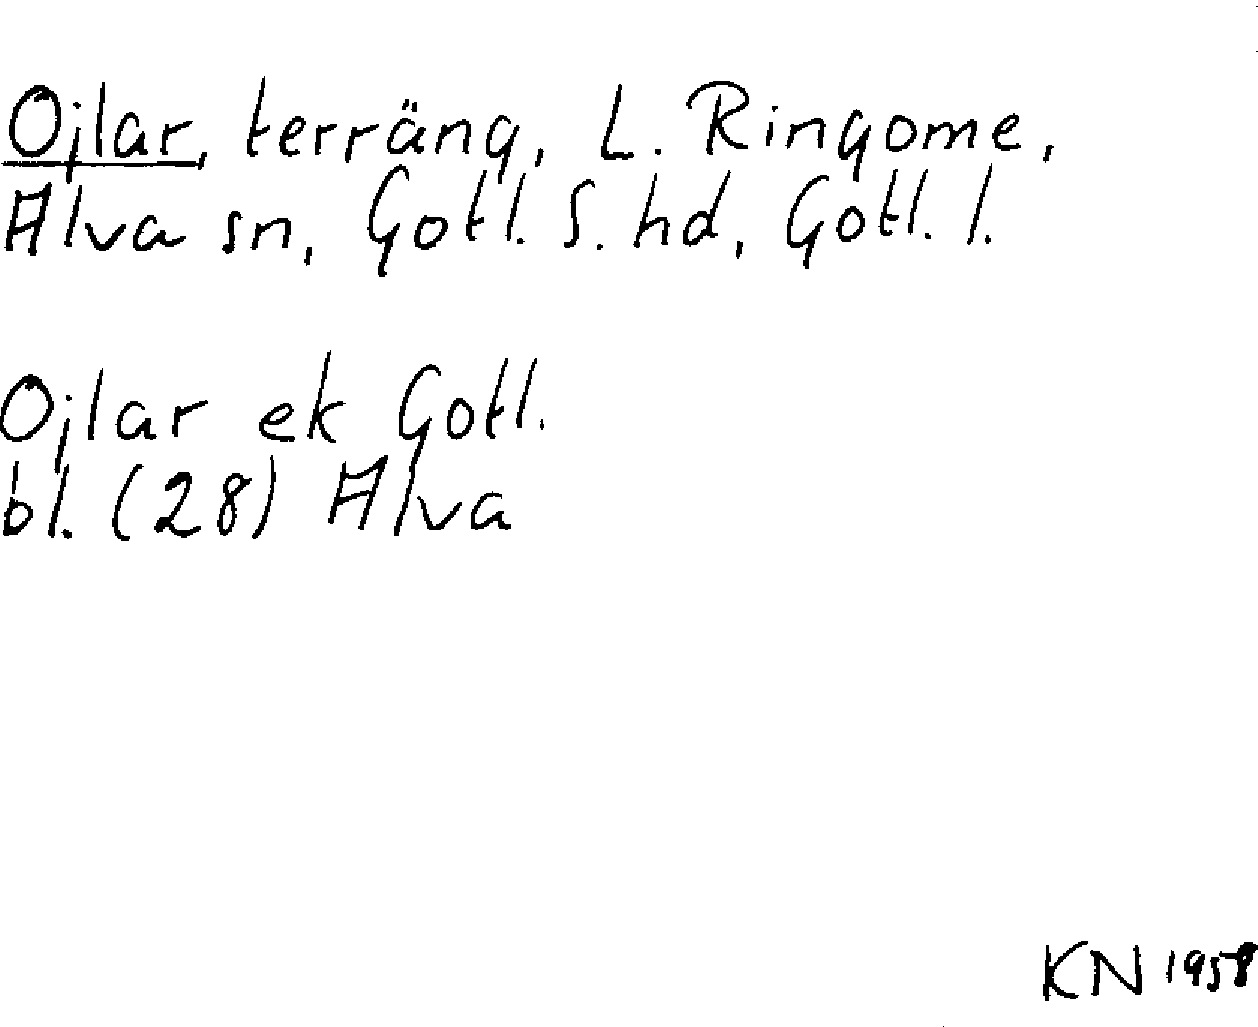 Ojlar, terräng, L. Ringome,
Alva sn, Gotl. S. hd, Gotl. l.
Ojlar ek Gotl.
bl. (28) Alva
KN 1958